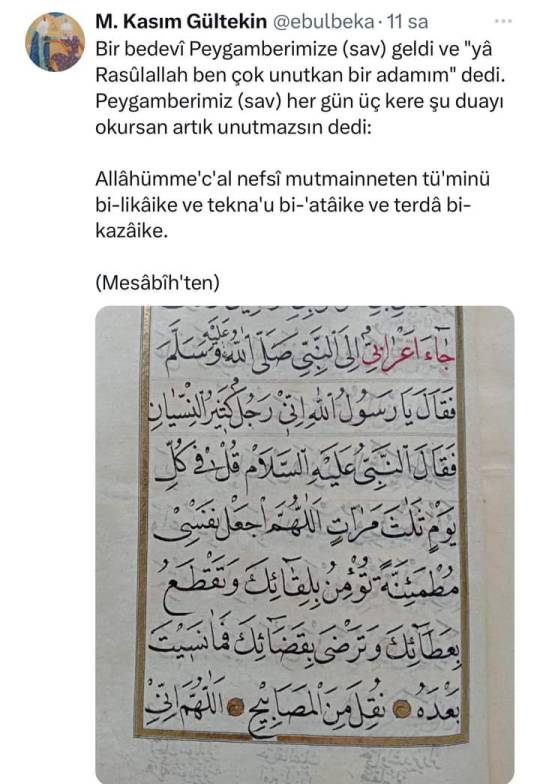 M. Kasım Gültekin @ebulbeka · 11 sa
Bir bedevî Peygamberimize (sav) geldi ve "yâ
Rasûlallah ben çok unutkan bir adamım" dedi.
Peygamberimiz (sav) her gün üç kere şu duayı
okursan artık unutmazsın dedi:
Allâhümme'c'al nefsî mutmainneten tü'minü
bi-likâike ve tekna'u bi-'atâike ve terdâ bi-
kazâike.
(Mesâbîh'ten)
جَاءَ اَعْرَابِيٌّ اِلَى النَّبِيِّ صَلَّى اللّٰهُ عَلَيْهِ وَسَلَّمَ
فَقَالَ يَا رَسُولَ اللّٰهِ اِنِّي رَجُلٌ كَثِيرُ النِّسْيَانِ
فَقَالَ النَّبِيُّ عَلَيْهِ السَّلَامُ قُلْ فِي كُلِّ
يَوْمٍ ثَلٰثَ مَرَّاتٍ اَللّٰهُمَّ اجْعَلْ نَفْسِي
مُطْمَئِنَّةً تُؤْمِنُ بِلِقَائِكَ وَتَقْطَعُ
بِعَطَائِكَ وَتَرْضَى بِقَضَائِكَ فَمَا نَسِيتَ
بَعْدَهُ نُقِلَ مِنَ الْمَصَابِيحِ اَللّٰهُمَّ اِنِّي